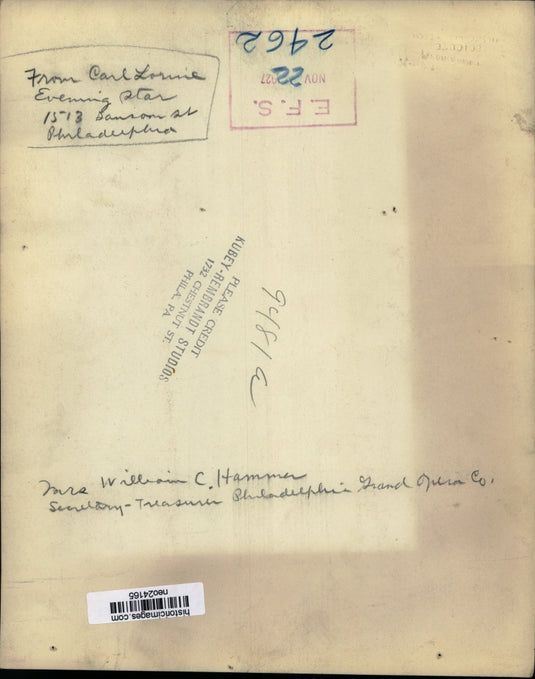 From Carl Lorine
Evening Star
1513 Sansom St
Philadelphia
2962
NOV 22 1927
E.F.S.
PLEASE CREDIT
KUBEY-REMBRANDT STUDIOS
1732 CHESTNUT ST.
PHILA. PA.
9481a
Mrs William C. Hammer
Secretary-Treasurer Philadelphia Grand Opera Co.
historicimages.com
neo24165